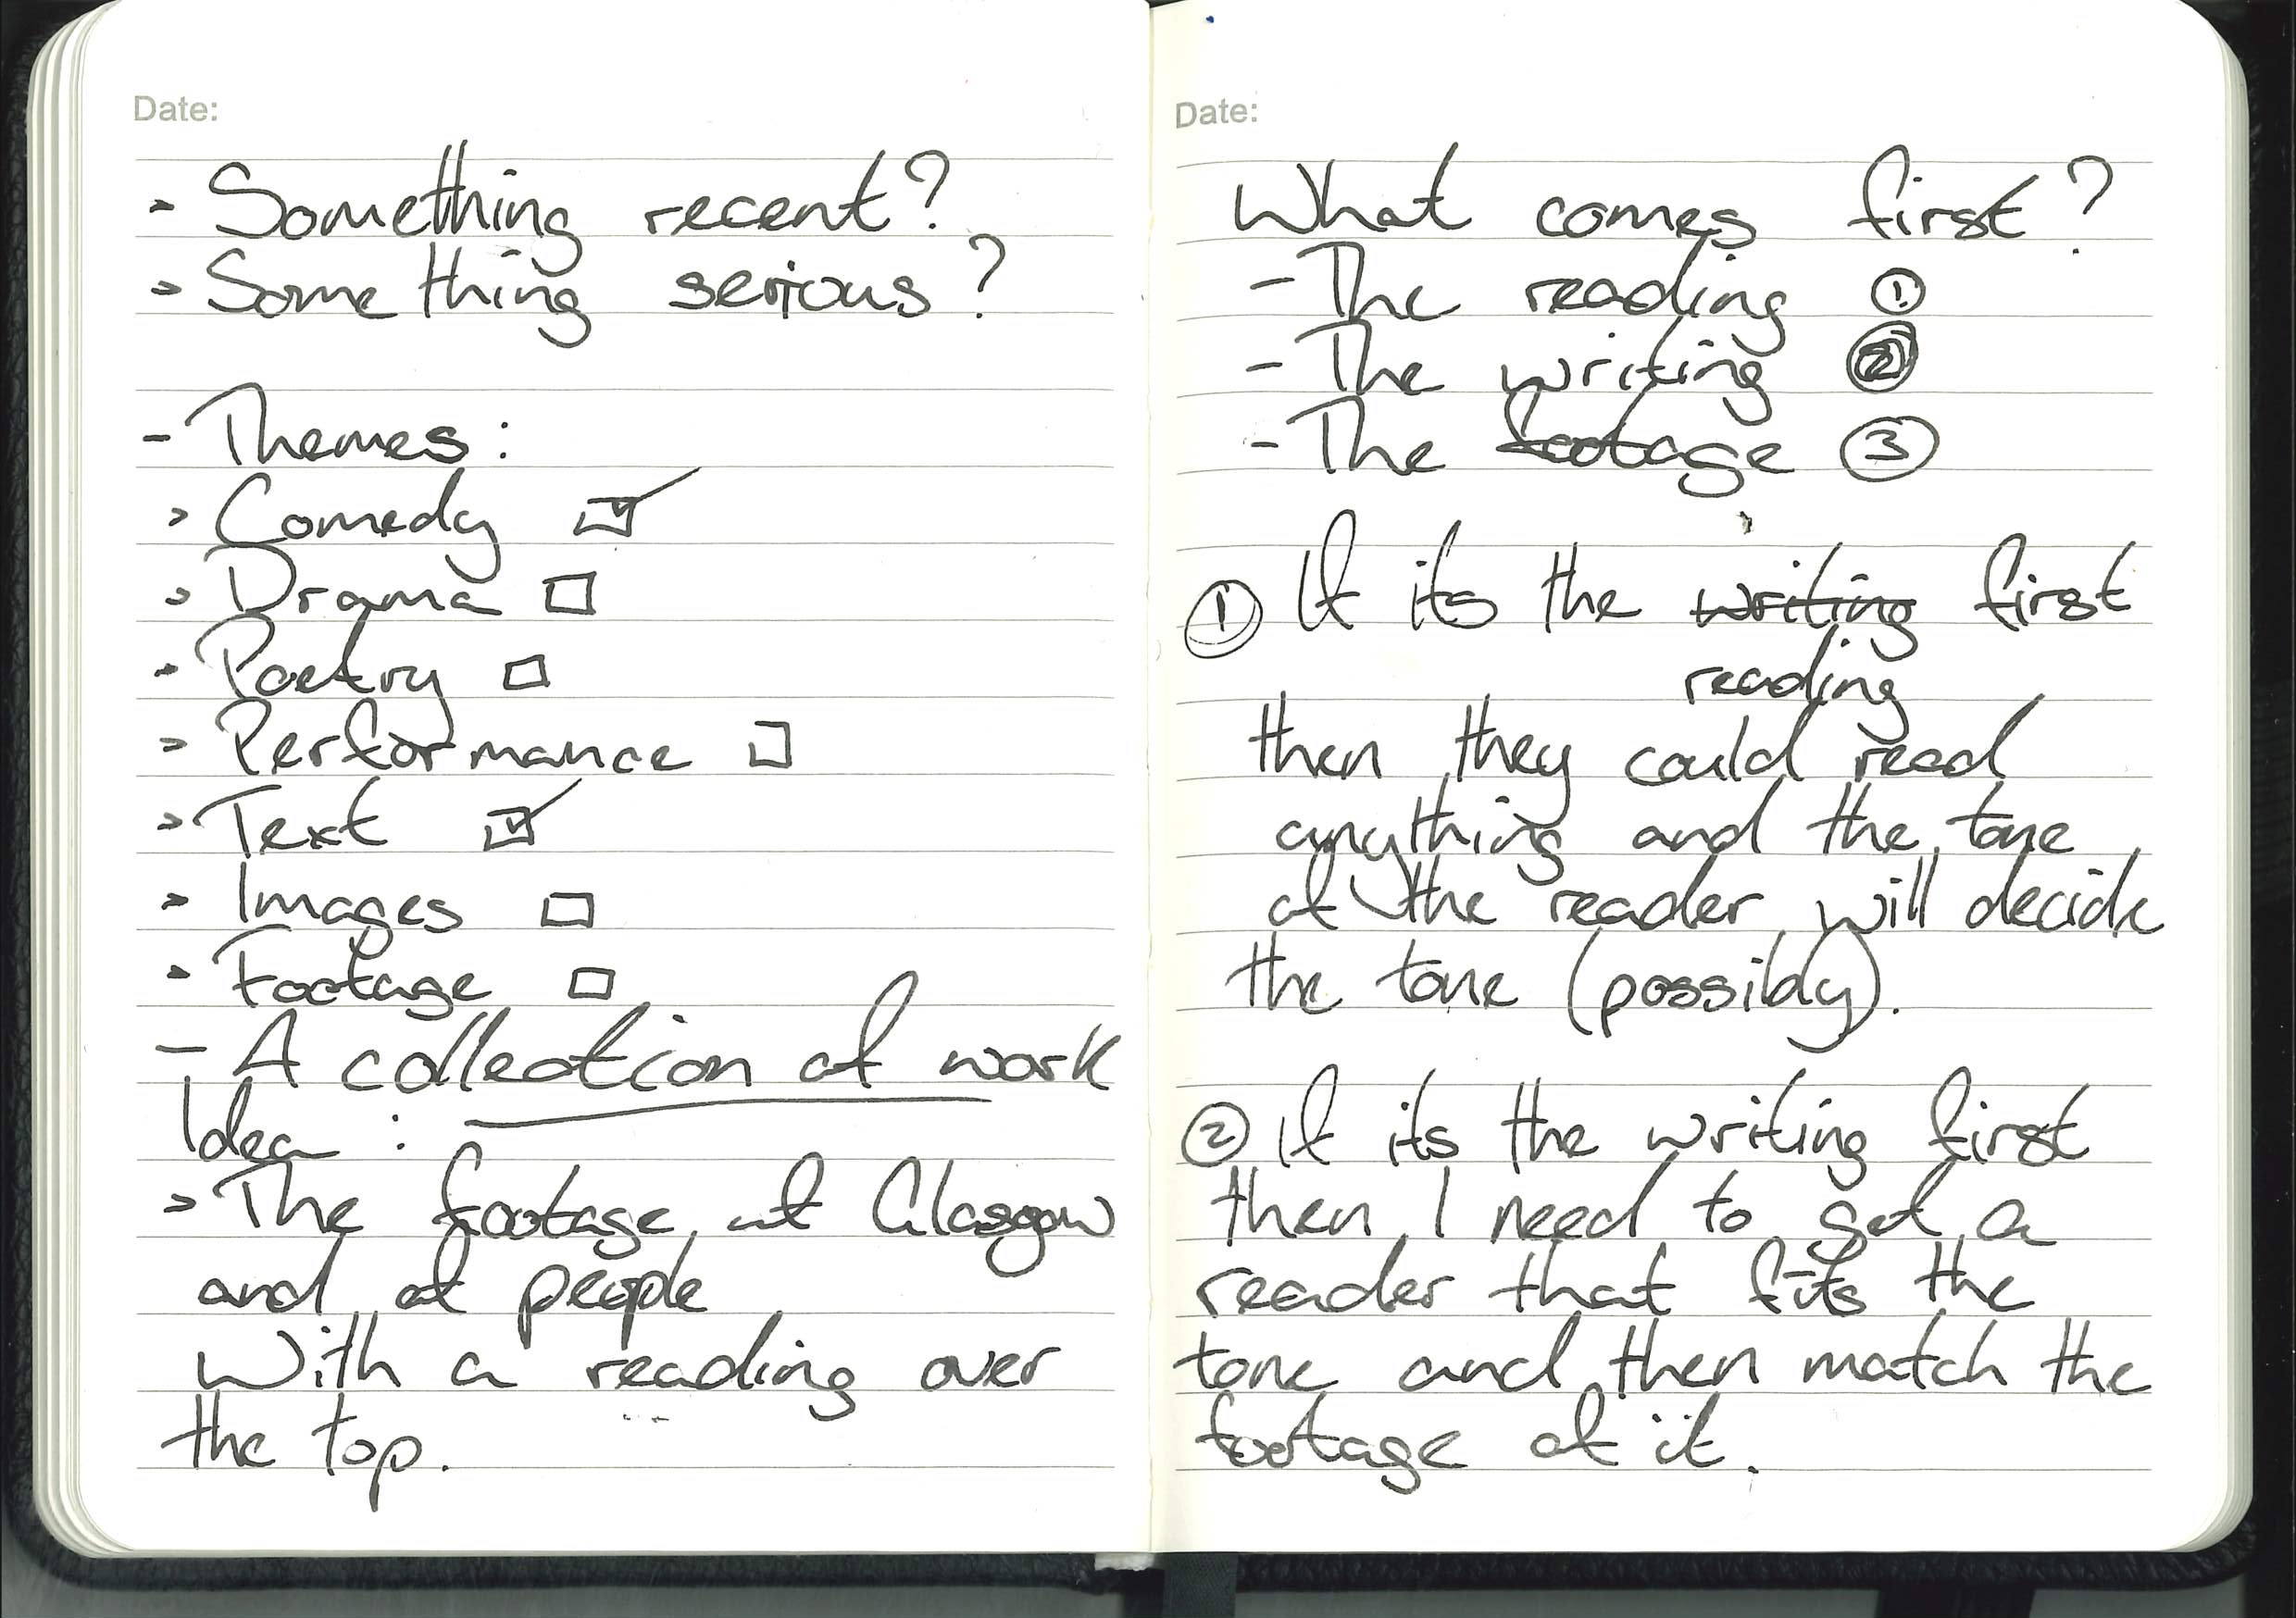 Date:
> Something recent?
> Something serious?
- Themes:
> Comedy ☑
> Drama ☐
> Poetry ☐
> Performance ☐
> Text ☑
> Images ☐
> Footage ☐
- A collection of work
Idea:
> The footage of Glasgow
and of people
With a reading over
the top.
Date:
What comes first?
- The reading ①
- The writing ②
- The footage ③
① If its the writing first
reading
then they could read
anything and the tone
of the reader will decide
the tone (possibly).
② If its the writing first
then I need to get a
reader that fits the
tone and then match the
footage of it.